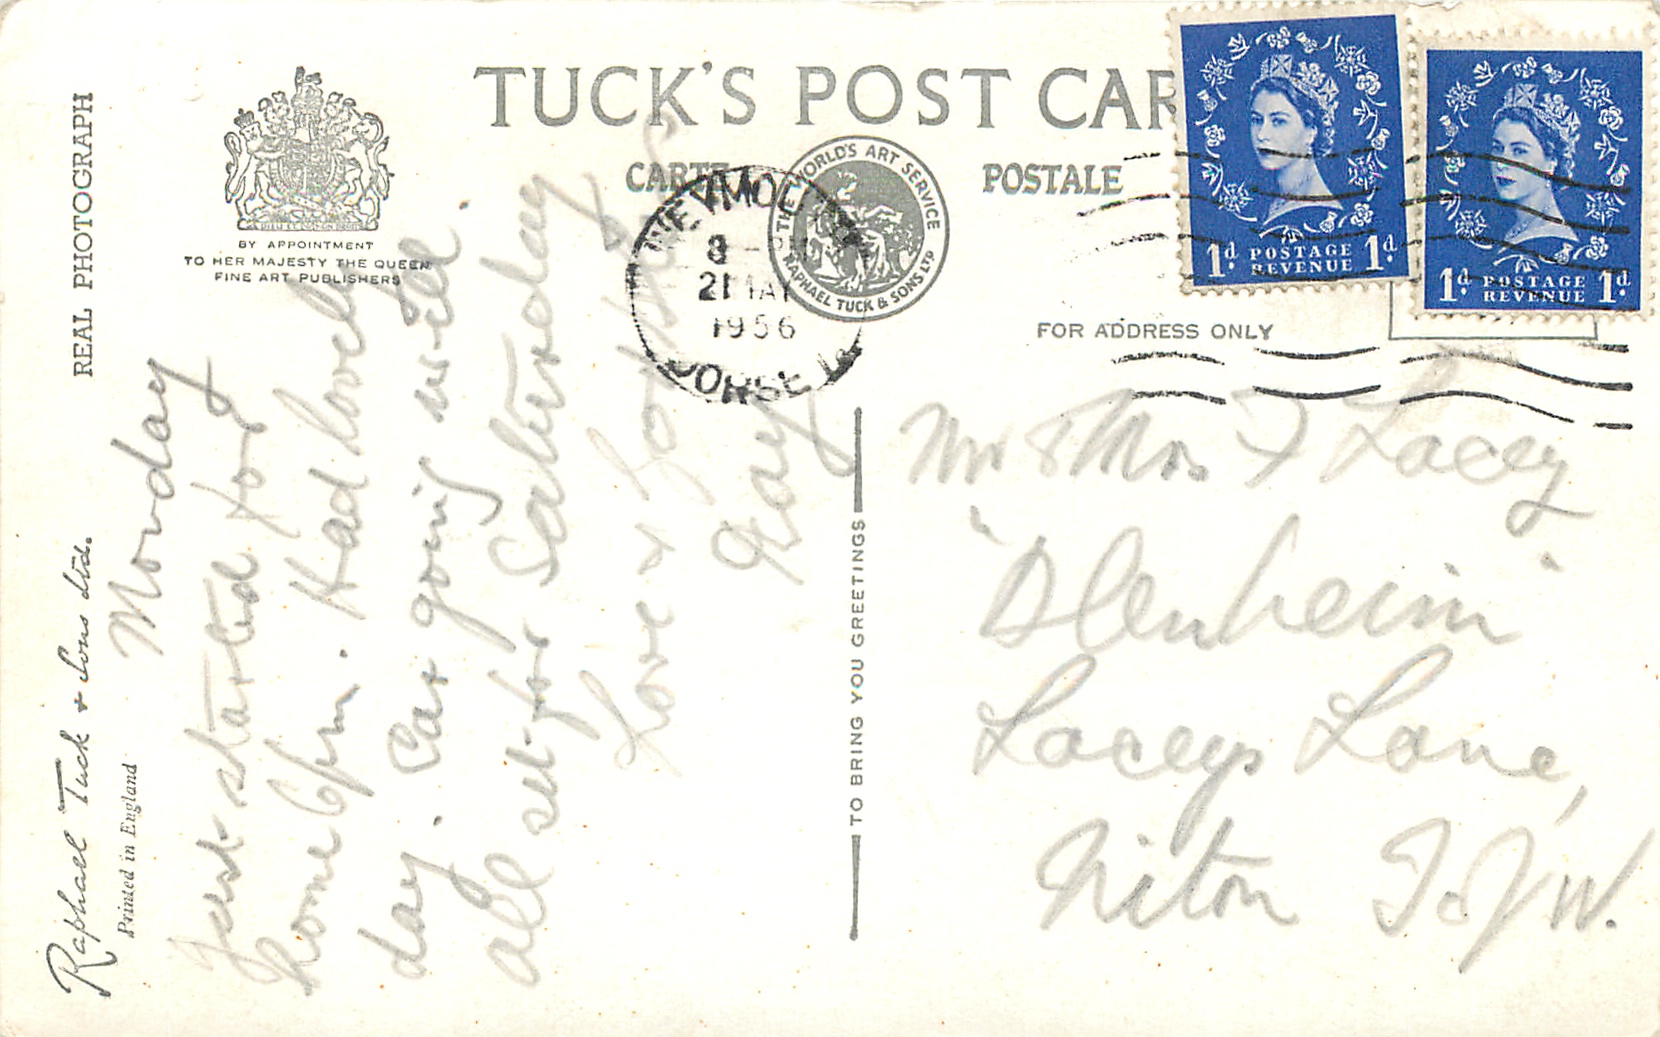 TUCK'S POST CAR
CARTE POSTALE
BY APPOINTMENT
TO HER MAJESTY THE QUEEN
FINE ART PUBLISHERS
REAL PHOTOGRAPH
Raphael Tuck & Sons Ltd.
Printed in England
THE WORLD'S ART SERVICE
RAPHAEL TUCK & SONS LTD
WEYMOUTH
8 - PM
21 MAY
1956
DORSET
1d. POSTAGE 1d.
REVENUE
1d. POSTAGE 1d.
REVENUE
FOR ADDRESS ONLY
TO BRING YOU GREETINGS
Monday
Just started for
home 6pm. Had lovely
day. Car going well
all set for Saturday
Love &
Mr & Mrs F Lacey
"Blenheim"
Laceys Lane,
Niton I of W.